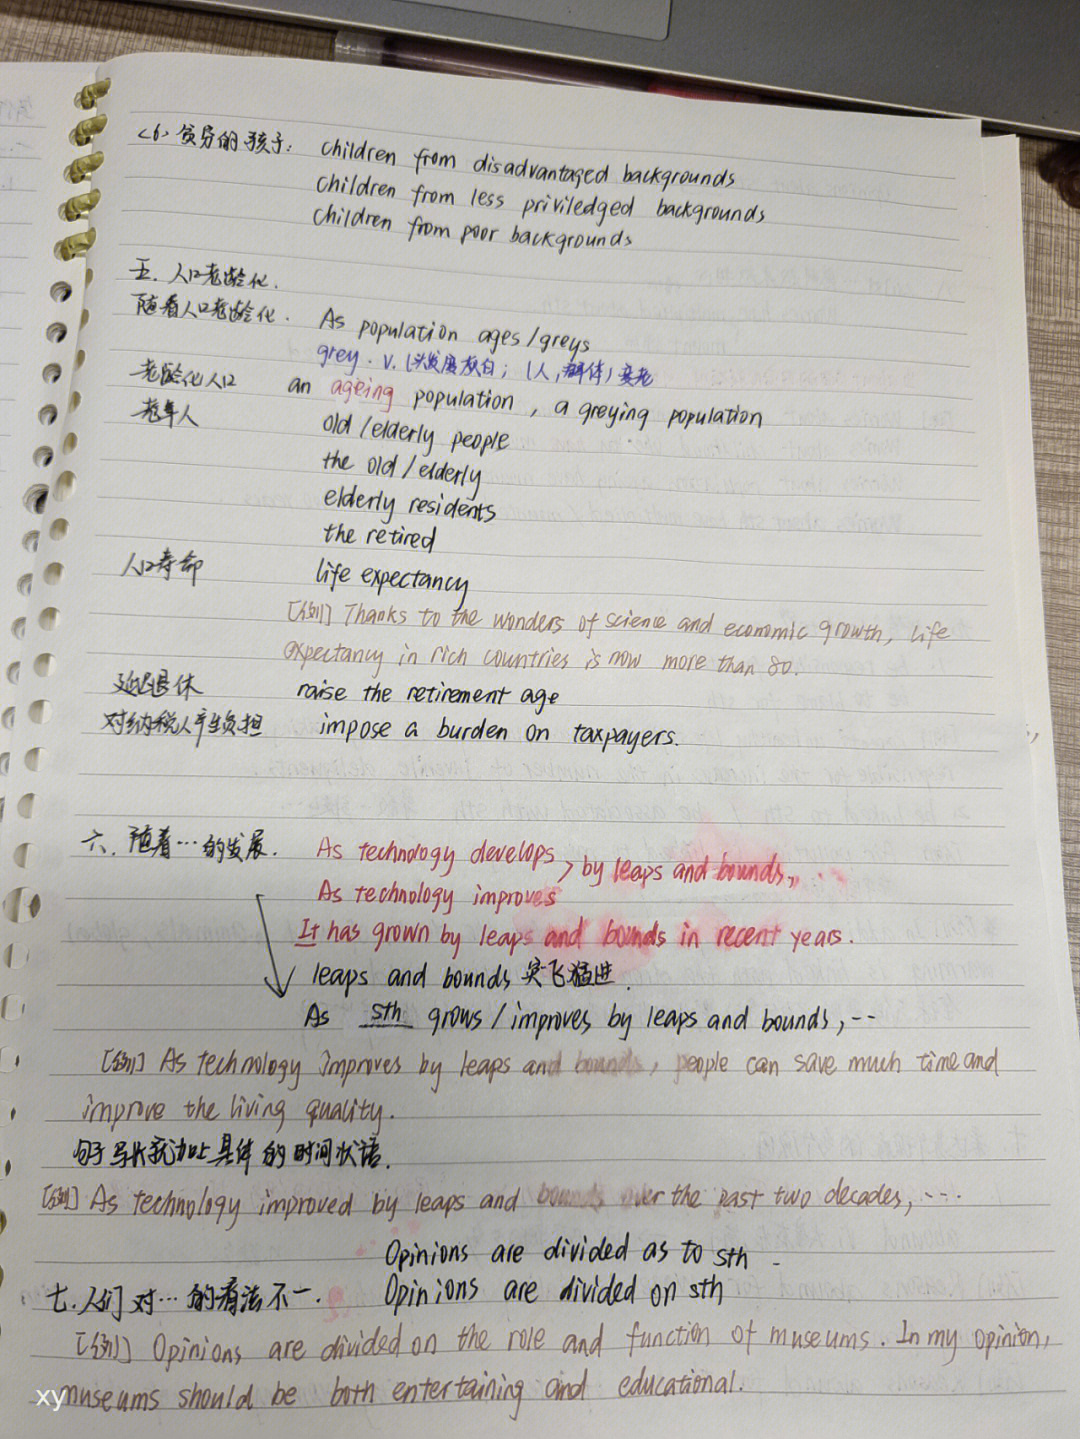 <6> 贫穷的孩子: children from disadvantaged backgrounds
children from less priviledged backgrounds
children from poor backgrounds
五. 人口老龄化.
随着人口老龄化. As population ages/greys
grey. v. (头发)灰白; (人,群体)变老
老龄化人口 an ageing population, a greying population
老年人 old/elderly people
the old/elderly
elderly residents
the retired
人口寿命 life expectancy
[例] Thanks to the wonders of science and economic growth, life
expectancy in rich countries is now more than 80.
延迟退休 raise the retirement age
对纳税人产生负担 impose a burden on taxpayers.
六. 随着…的发展. As technology develops, by leaps and bounds,
As technology improves
It has grown by leaps and bounds in recent years.
leaps and bounds 突飞猛进.
As sth grows/improves by leaps and bounds, ...
[例] As technology improves by leaps and bounds, people can save much time and
improve the living quality.
句子写长就加上具体的时间状语.
[例] As technology improved by leaps and bounds over the past two decades, ...
Opinions are divided as to sth
七. 人们对…的看法不一. Opinions are divided on sth
[例] Opinions are divided on the role and function of museums. In my opinion,
museums should be both entertaining and educational.
xy